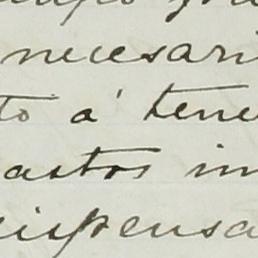 necesari
to á tene
astos in
dispensa